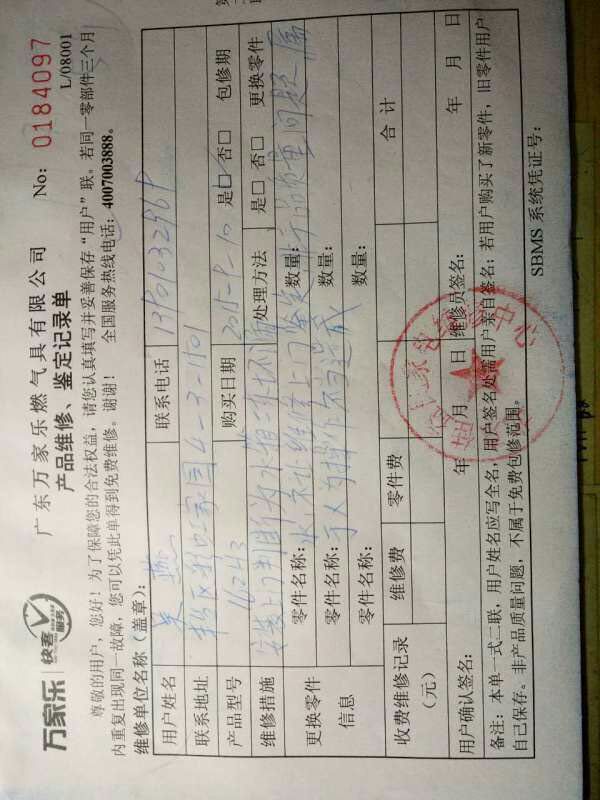 万家乐 快客服务
广东万家乐燃气具有限公司 No: 0184097
产品维修、鉴定记录单 L/08001
尊敬的用户，您好！为了保障您的合法权益，请您认真填写并妥善保存“用户”联。若同一零部件三个月
内重复出现同一故障，您可以凭此单得到免费维修。谢谢！ 全国服务热线电话：4007003888。
维修单位名称（盖章）：
用户姓名 吴 联系电话
联系地址 4-3-1501
产品型号 16243 购买日期 2015- 是□ 否□ 包修期
维修措施 安装上门判断为水箱冻坏漏 处理方法 是□ 否□ 更换零件
更换零件信息 零件名称： 水，乐社维修上门鉴定 数量： 产品质量问题属
零件名称： 于人为操作不当造成 数量：
零件名称： 数量：
收费维修记录（元） 维修费 零件费 合计
用户确认签名： 年 月 日 维修员签名： 年 月 日
备注：本单一式二联，用户姓名应写全名，用户签名处需用户亲自签名；若用户购买了新零件，旧零件用户
自己保存。非产品质量问题，不属于免费包修范围。
SBMS 系统凭证号：